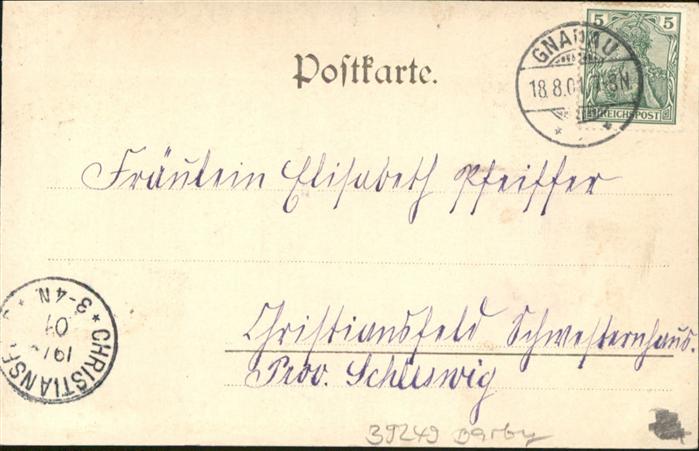 Postkarte.
5 5
REICHSPOST
GNADAU
18.8.01
Fräulein Elisabeth Pfeiffer
Christiansfeld Schwesternhaus.
Prov. Schleswig
3-4N.
01
CHRISTIANSF
39249 Barby